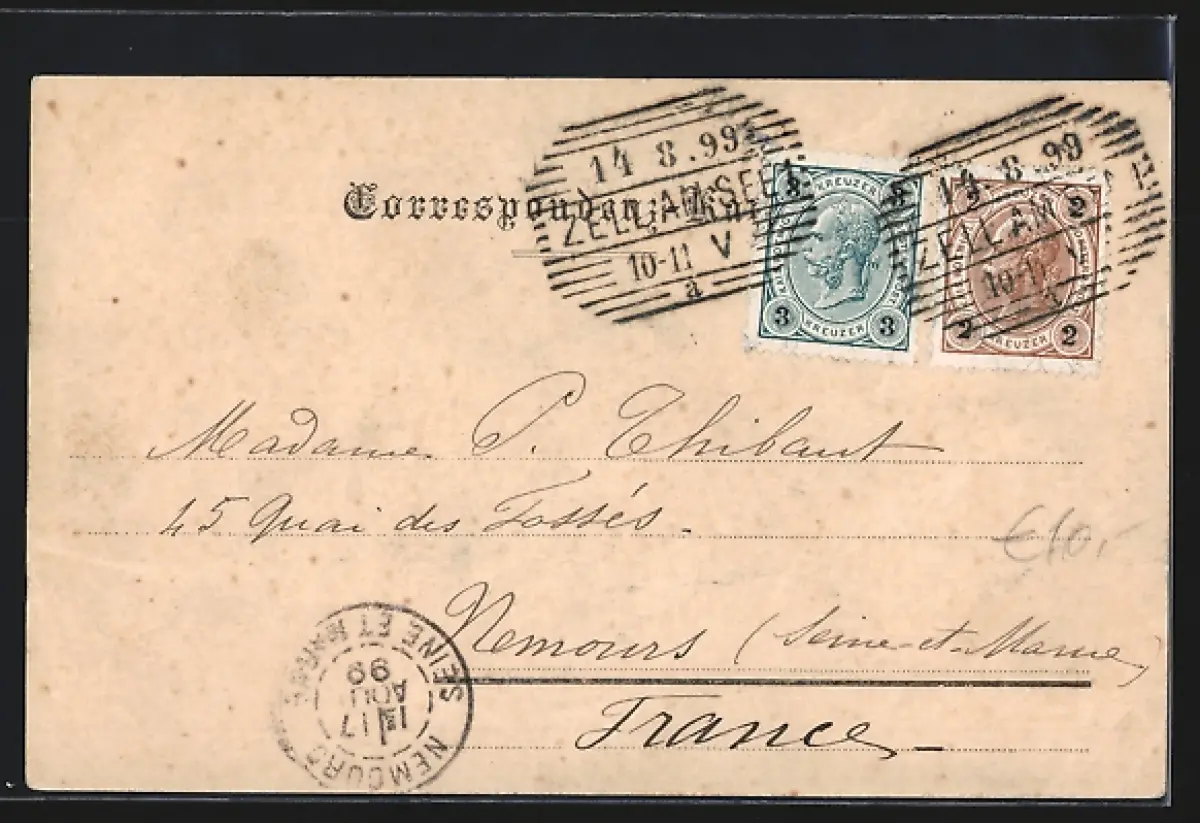 Correspondenz-Karte
14 8.99
ZELL AM SEE
10-11 V
a
14.8.99
ZELL AM
10-11 V
KREUZER
3 3
KREUZER
2
2 2
KREUZER
Madame P. Thibaut
45 Quai des Fossés.
€10,-
Nemours (Seine-et-Marne)
France
NEMOURS
SEINE ET MARNE
17
AOU
99